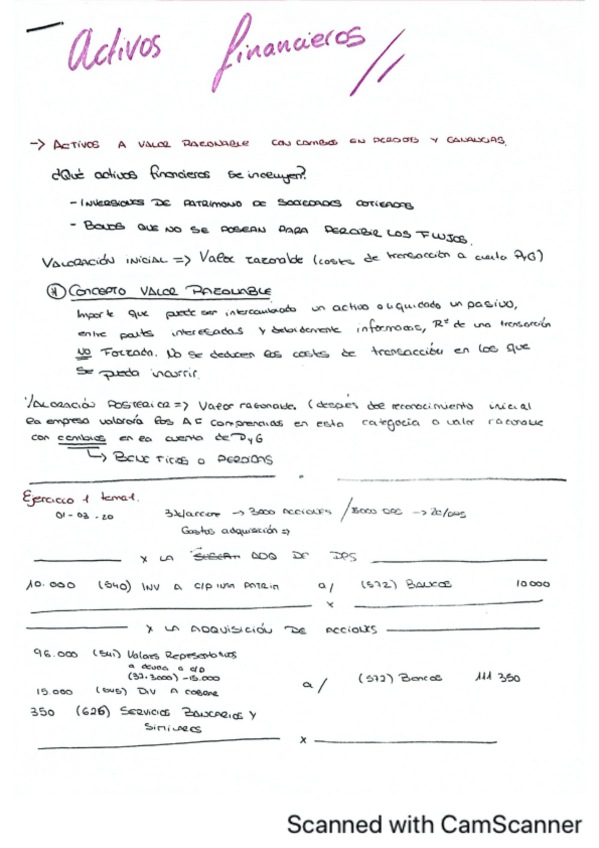 Activos financieros
-> ACTIVOS A VALOR RAZONABLE CON CAMBIOS EN PERDIDAS Y GANANCIAS.
¿Qué activos financieros se incluyen?
- INVERSIONES DE PATRIMONIO DE SOCIEDADES COTIZADAS
- BONOS QUE NO SE POSEAN PARA PERCIBIR LOS FLUJOS.
VALORACIÓN INICIAL => Valor razonable (costes de transacción a cuenta PyG)
CONCEPTO VALOR RAZONABLE
Importe que puede ser intercambiado un activo o liquidado un pasivo,
entre partes interesadas y debidamente informadas, de una transacción
NO Forzada. No se deducen los costes de transacción en los que
se pueda incurrir.
VALORACIÓN POSTERIOR => Valor razonable. (después del reconocimiento inicial
la empresa valorará los AF comprendidos en esta categoría a valor razonable
con cambios en la cuenta de PyG
BENEFICIOS O PERDIDAS
Ejercicio 1 tema 1.
01-03-20 -> 3000 ACCIONES /
Gastos adquisición =>
x LA ADQ DE DPS
10.000 (540) INV A C/P INS PATRIM a/ (572) BANCOS 10000
x
x LA ADQUISICIÓN DE ACCIONES
96.000 (541) Valores Representativos
a deuda a c/p
(32.3000) -15.000
15.000 (545) DIV A COBRAR a/ (572) Bancos 111 350
350 (626) SERVICIOS BANCARIOS Y
SIMILARES
x
Scanned with CamScanner